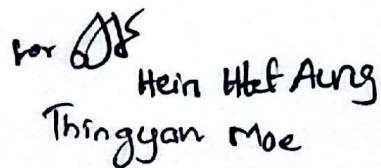 for
Hein Htet Aung
Thingyan Moe